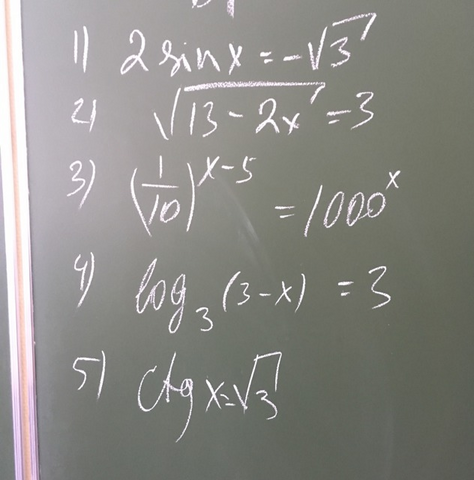 1) 2 sin x = -√3
2) √(13 - 2x) = 3
3) (1/10)^(x-5) = 1000^x
4) log₃ (3-x) = 3
5) ctg x = √3